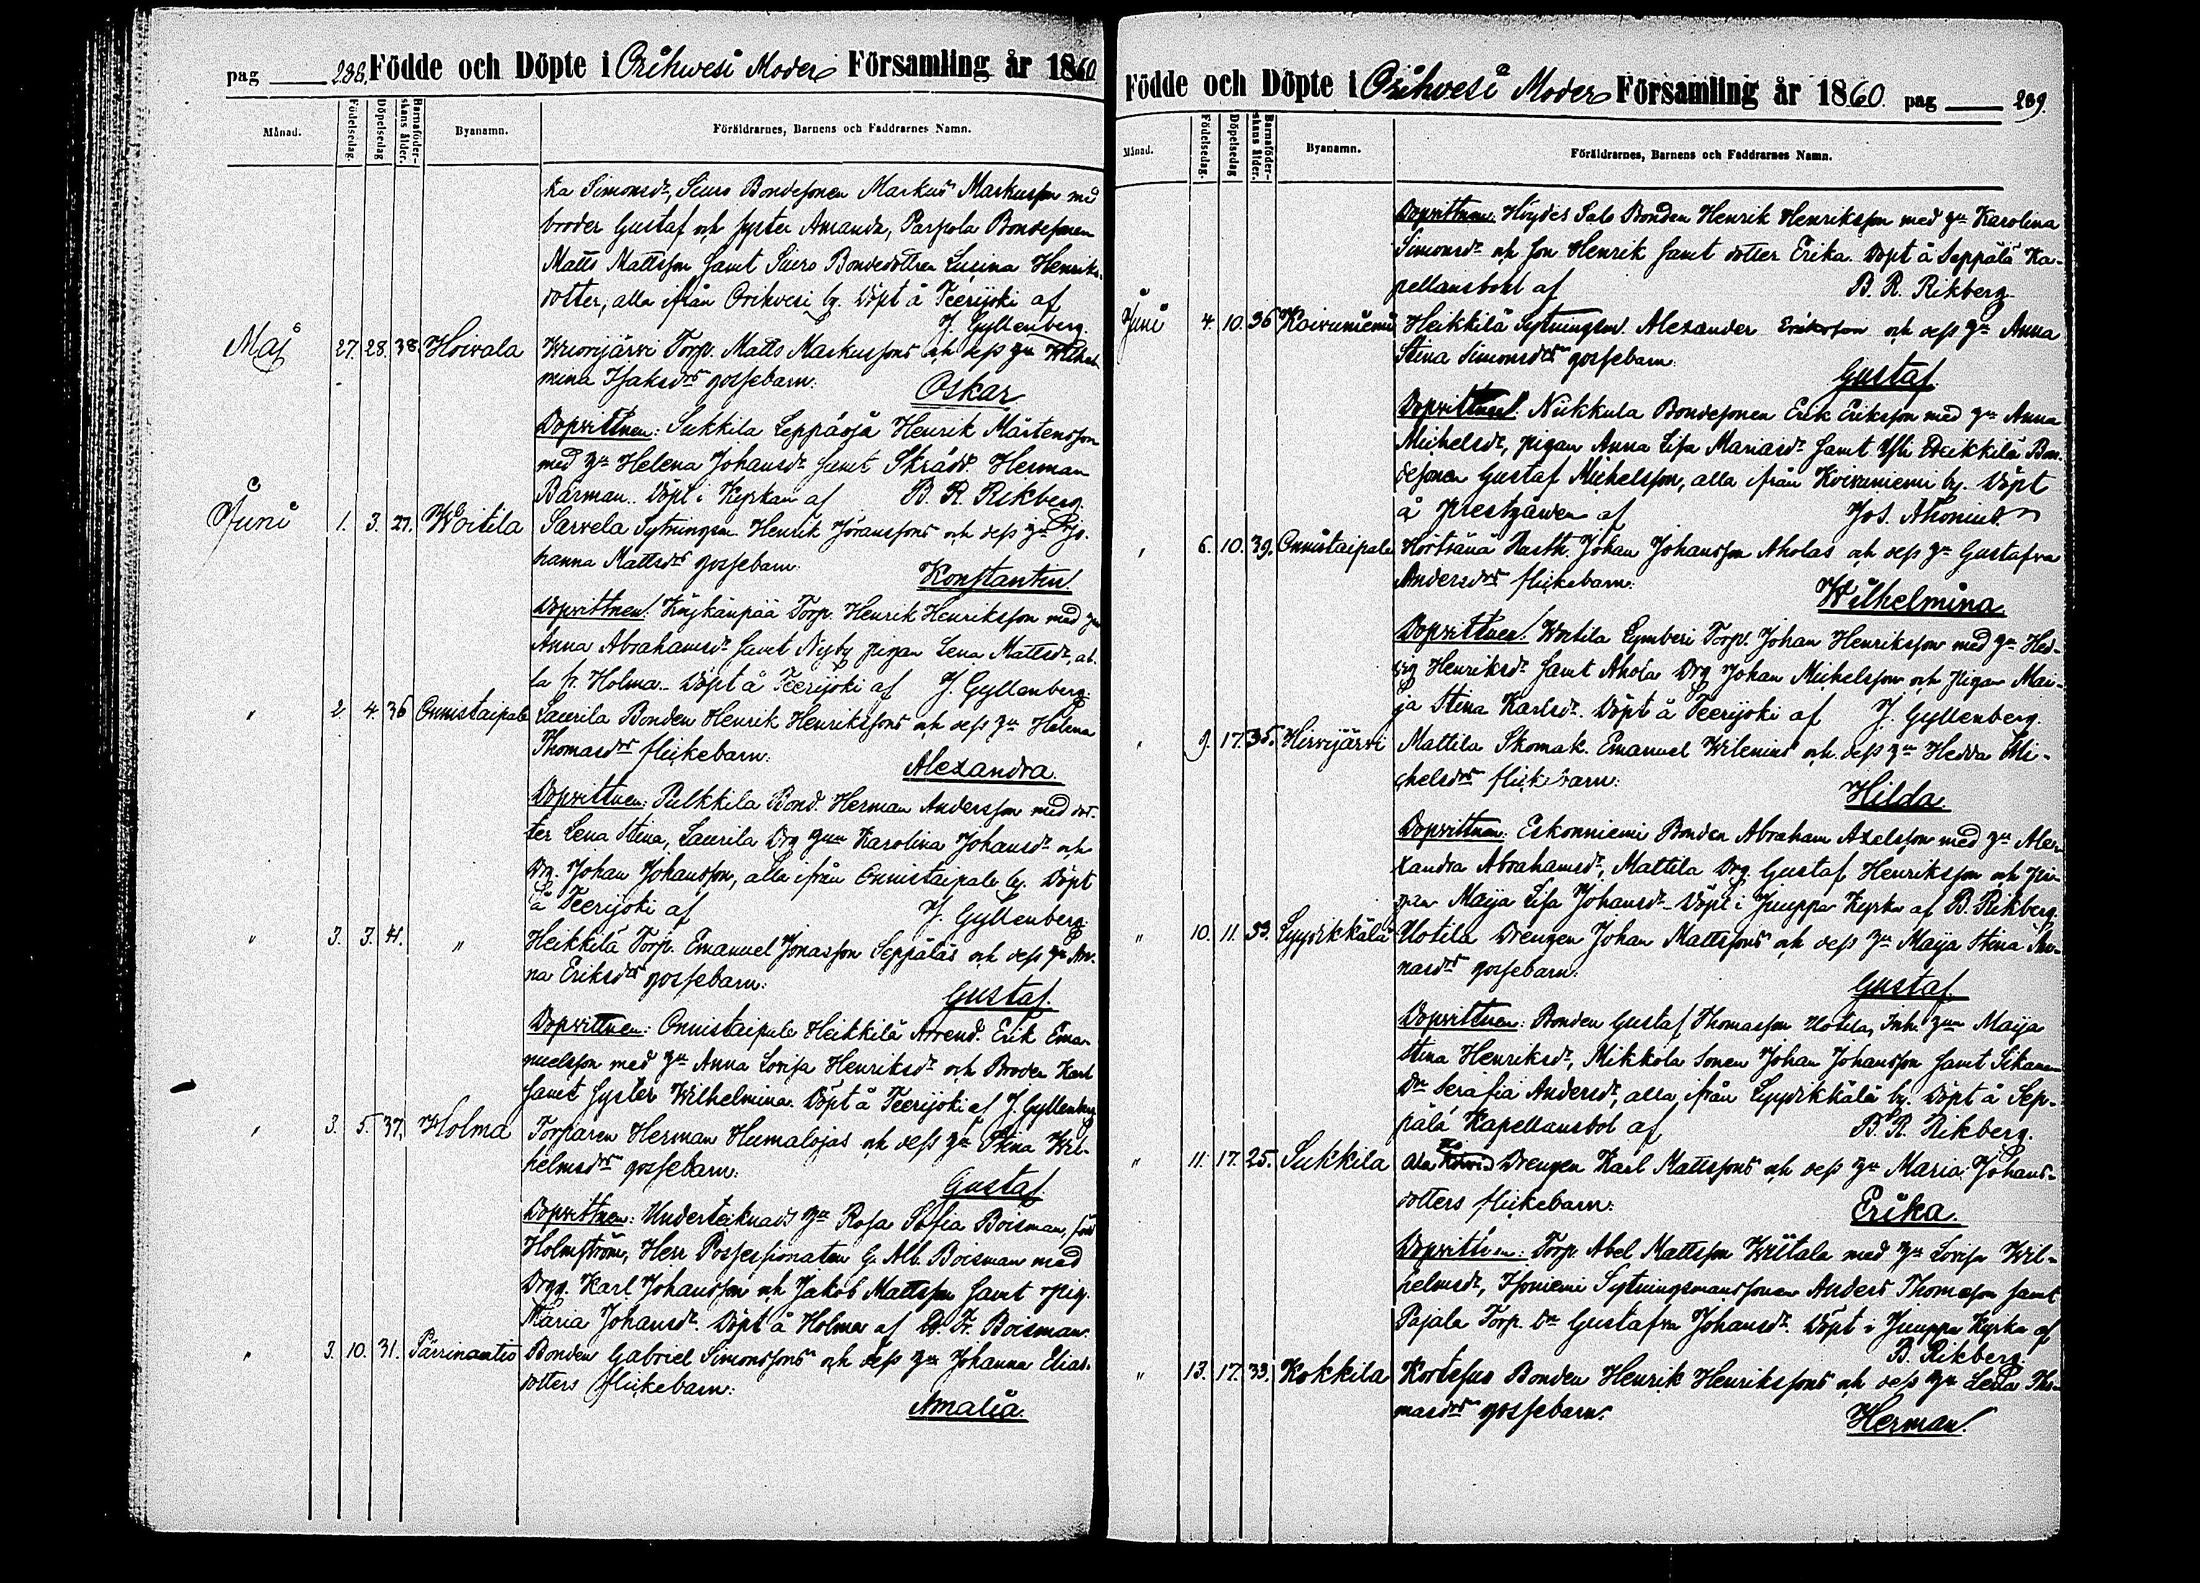 pag 238. Födde och Döpte i Orihwesi Moder Församling år 1860
Månad. Födelsedag. Döpelsedag Barnaföderskans ålder. Byanamn. Föräldrarnes, Barnens och Faddrarnes Namn.
ka Simonsdr, Siuro Bondesonen Markus Markusson med
broder Gustaf och syster Amanda, Parpola Bondesonen
Matts Mattsson samt Siuro Bondedottren Lusina Henriks-
dotter, alla ifrån Orihvesi by. Döpt å Teerijoki af
J. Gyllenberg.
Maj 27. 28. 38. Hoivala Wuorijärvi Torp. Matts Markussons och dess hu Wilhel-
mina Isaksdrs gossebarn:
Oskar
Dopvittnen: Sukkila Leppäoja Henrik Mårtensson
med hu Helena Johansdr samt Skrädd. Herman
Barman. Döpt i Kyrkan af B. R. Rikberg.
Juni 1. 3. 27. Woitila Sarvela Sytningsm. Henrik Jöranssons och dess hu Jo-
hanna Mattsdrs gossebarn:
Konstantin.
Dopvittnen: Torp. Henrik Henriksson med hu
Anna Abrahamsdr samt Nyby pigan Lena Mattsdr, al-
la fr. Holma. Döpt å Teerijoki af J. Gyllenberg.
" 2. 4. 36 Onnistaipale Laurila Bonden Henrik Henrikssons och dess hu Helena
Thomasdrs flickebarn:
Alexandra.
Dopvittnen: Pulkkila Bond. Herman Andersson med dot-
ter Lena Stina, Laurila Drg hun Karolina Johansdr och
Drg. Johan Johansson, alla ifrån Onnistaipale by. Döpt
å Teerijoki af J. Gyllenberg.
" 3. 3. 41. " Heikkilä Torp. Emanuel Jonasson Seppäläs och dess hu An-
na Eriksdrs gossebarn:
Gustaf.
Dopvittnen: Onnistaipale Heikkilä Arrend. Erik Ema-
nuelsson med hu Anna Lovisa Henriksdr och Broder Karl
samt syster Wilhelmina. Döpt å Teerijoki af J. Gyllenberg
" 3. 5. 37. Holma Torparen Herman Humalojas och dess hu Stina Wil-
helmsdrs gossebarn:
Gustaf
Dopvittnen: Undertecknads hu Rosa Sofia Boisman, född
Holmström, Herr Possessionaten G. Alb. Boisman med
Drgg. Karl Johansson och Jakob Mattsson samt pig.
Maria Johansdr. Döpt å Holma af Fr. Boisman.
" 3. 10. 31. Pärrinmatis Bonden Gabriel Simonssons och dess hu Johanna Elias-
dotters flickebarn:
Amalia.
Födde och Döpte i Orihvesi Moder Församling år 1860. pag 239.
Månad. Födelsedag. Döpelsedag Barnaföderskans ålder. Byanamn. Föräldrarnes, Barnens och Faddrarnes Namn.
Dopvittnen: Höydes Salo Bonden Henrik Henriksson med hu Karolina
Simonsdr och son Henrik samt dotter Erika. Döpt å Seppälä Ka-
pellansbohl af B. R. Rikberg.
Juni 4. 10. 36 Koivuniemi Heikkilä Sytningsm. Alexander Eriksson och dess hu Anna
Stina Simonsdrs gossebarn:
Gustaf.
Dopvittnen: Niikkula Bondesonen Erik Eriksson med hu Anna
Michelsdr, pigan Anna Lisa Mariasdr samt Heikkilä Bon-
desonen Gustaf Michelsson, alla ifrån Koivuniemi by. Döpt
å prestgården af Jos. Ahonius.
" 6. 10. 39. Onnistaipale Hörtsänä Johan Johansson Aholas och dess hu Gustafva
Andersdrs flickebarn:
Wilhelmina.
Dopvittnen: Woitila Torp. Johan Henriksson med hu Hed-
vig Henriksdr samt Ahola Drg Johan Michelsson och pigan Mai-
ja Stina Karlsdr. Döpt å Teerijoki af J. Gyllenberg.
" 9. 17. 35. Hirvijärvi Mattila Skomak. Emanuel Wilenius och dess hu Hedda Mi-
chelsdrs flickebarn:
Hilda
Dopvittnen: Eskonniemi Bonden Abraham Axelsson med hu Ale-
xandra Abrahamsdr, Mattila Drg. Gustaf Henriksson och Pi-
gan Maija Lisa Johansdr. Döpt i Juuppa Kyrka af B. Rikberg.
" 10. 11. 33. Lyydikkälä Uotila Drengen Johan Mattssons och dess hu Maija Stina An-
nasdrs gossebarn:
Gustaf.
Dopvittnen: Bonden Gustaf Thomasson Uotila, Inh. hun Maija
Stina Henriksdr, Mikkola Sonen Johan Johansson samt
Dr Serafia Andersdr, alla ifrån Lyydikkälä by. Döpt å Sep-
pälä Kapellansbol af B. R. Rikberg.
" 11. 17. 25. Sukkila Drengen Karl Mattssons och dess hu Maria Johans-
dotters flickebarn:
Erika.
Dopvittnen: Torp. Abel Mattsson Wiitala med hu Lovisa Wil-
helmsdr, Isoniemi Sytningsmanssonen Anders Thomasson samt
Pajala Torp. Dr Gustafva Johansdr. Döpt i Juuppa Kyrka af
B. Rikberg.
" 13. 17. 33. Kokkila Kortesus Bonden Henrik Henrikssons och dess hu Leena Tho-
masdrs gossebarn:
Herman.